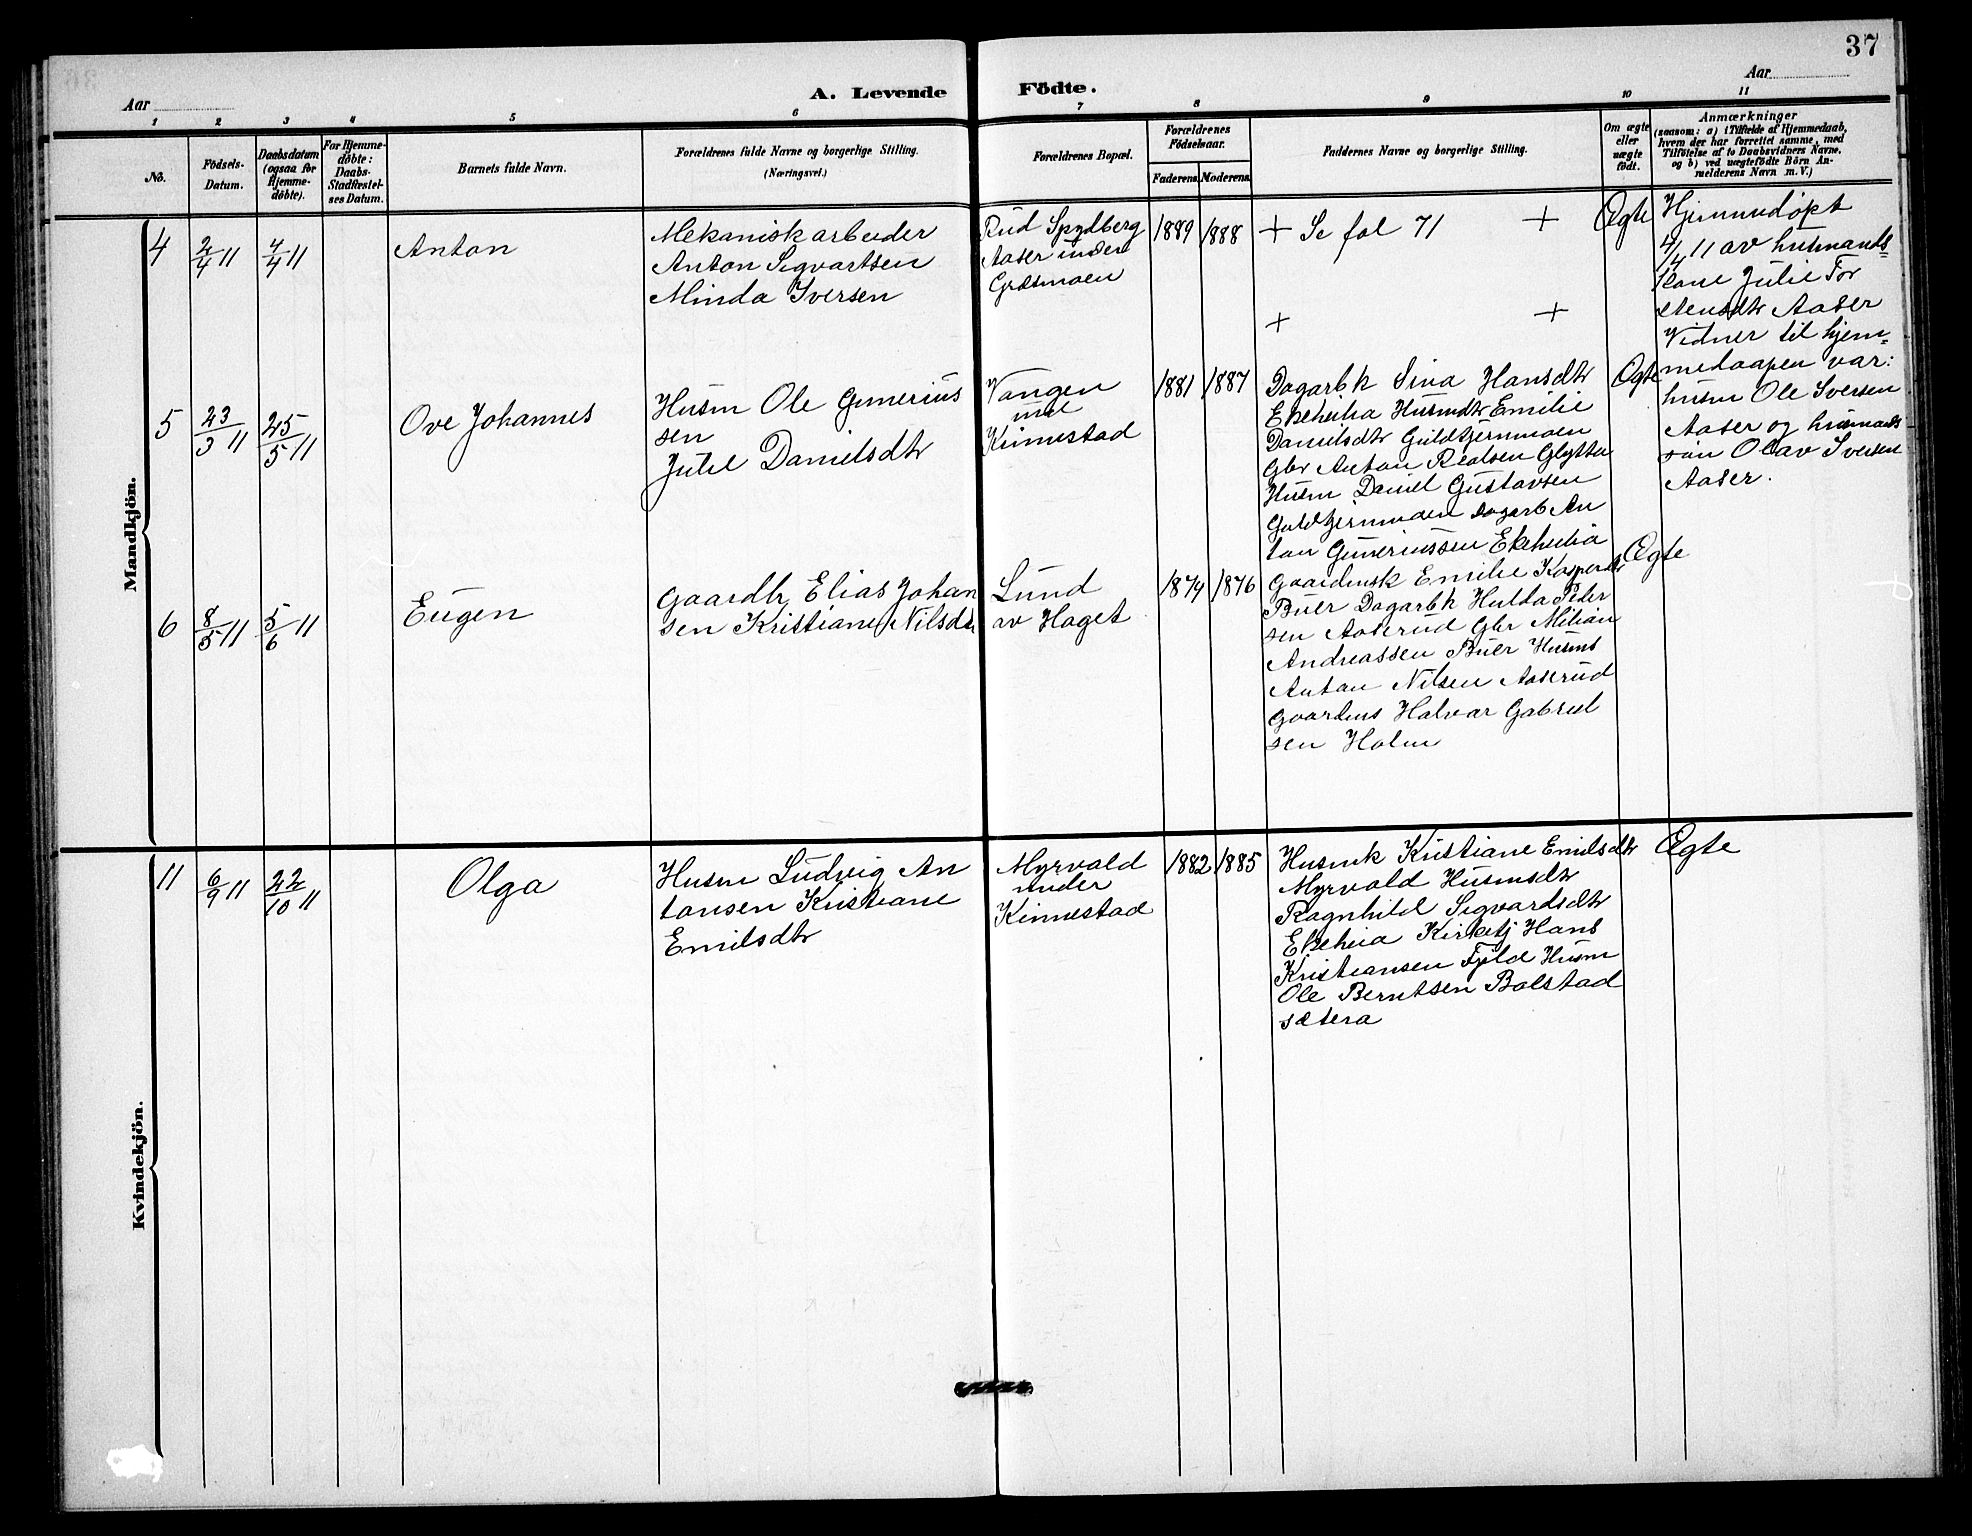 37
Aar
A. Levende Födte.
Aar
1 2 3 4 5 6 7 8 9 10 11
No.
Födsels-
Datum.
Daabsdatum
(ogsaa for
Hjemme-
döbte).
For Hjemme-
döbte:
Daabs-
Stadfæstel-
ses Datum.
Barnets fulde Navn.
Forældrenes fulde Navne og borgerlige Stilling.
(Næringsvei.)
Forældrenes Bopæl.
Forældrenes
Födselsaar.
Faderens. Moderens.
Faddernes Navne og borgerlige Stilling.
Om ægte
eller
uægte
födt.
Anmærkninger
(saasom: a) i Tilfælde af Hjemmedaab,
hvem der har forrettet samme, med
Tilföielse af to Daabsvidners Navne,
og b) ved uægtefödte Börn An-
melderens Navn m. V.)
Mandkjön.
4
2/4 11
4/4 11
Anton
Mekanisk arbeider
Anton Sigvartsen
Minda Iversen
Rud Spydberg
Aaser under
Græsmoen
1889 1888
+ Se fol 71 +
+ +
Ægte
Hjemmedøpt
4/4 11 av husmands=
kone Julie Tor
stensdtr Aaser
Vidner til hjem=
medaapen var:
husm Ole Iversen
Aaser og husmands
søn Olav Iversen
Aaser.
5
23/3 11
25/5 11
Ove Johannes
Husm Ole Gunerius
sen
Julie Danielsdtr
Vangen
une
Kinnestad
1881 1887
Dagarbk Sina Hansdtr
Ekeheia Husmdtr Emilie
Danielsdtr Guldtjernmoen
Gbr Anton Glytten
Husm Daniel Gustavsen
Guldtjernmoen Dagarb An
ton Guneriussen Ekeheia
Ægte
6
8/5 11
5/6 11
Eugen
Gaardbr Elias Johan
sen Kristiane Nilsdtr
Lund
av Haget
1874 1876
Gaardmsk Emilie Kaspersdtr
Buer Dagarbk Hulda Peder
sen Aaserud Gbr Milian
Andreassen Buer Husms
Anton Nilsen Aaserud
Gaardms Halvar Gabriel
sen Holm
Ægte
Kvindekjön.
11
6/9 11
22/10 11
Olga
Husm Ludvig An
tonsen Kristiane
Emilsdtr
Myrvold
under
Kinnestad
1882 1885
Husmk Kristiane Emilsdtr
Myrvold Husmsdtr
Ragnhild Sigvardsdtr
Ekeheia Kirketj Hans
Kristiansen Fjeld Husm
Ole Berntsen Bolstad
sætera
Ægte